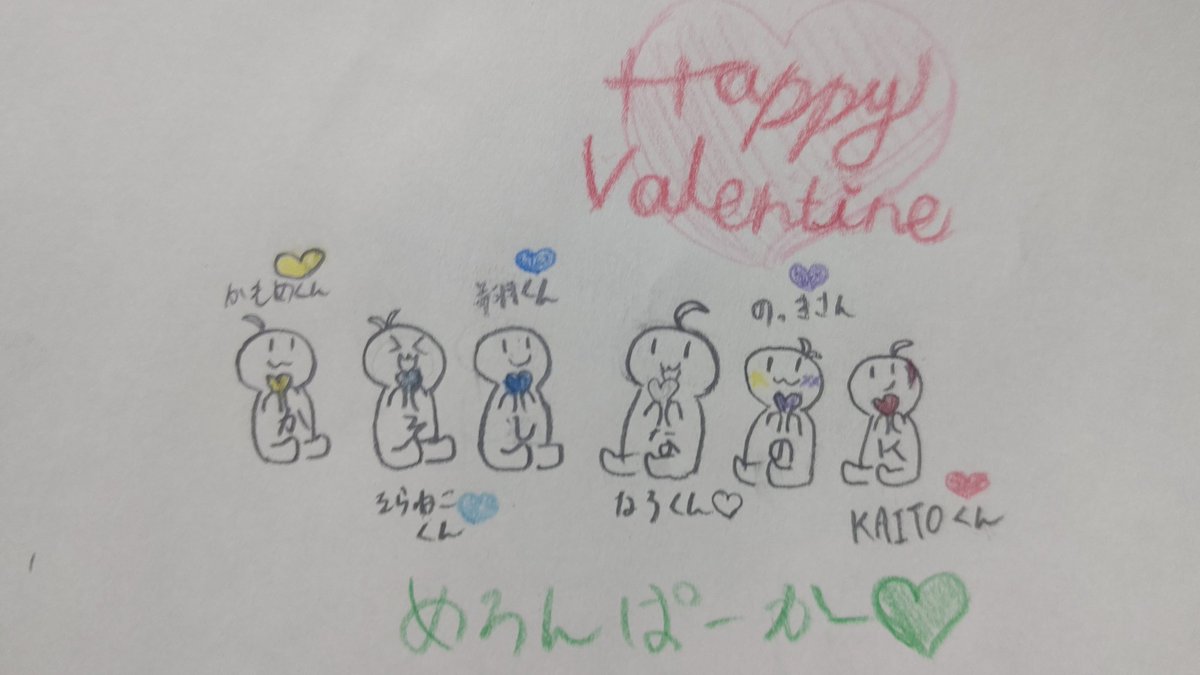 Happy
Valentine
かもめくん
くん
のっきさん
か
そ
し
な
の
K
そらねこ
くん
なろくん♡
KAITOくん
めろんぱーかー